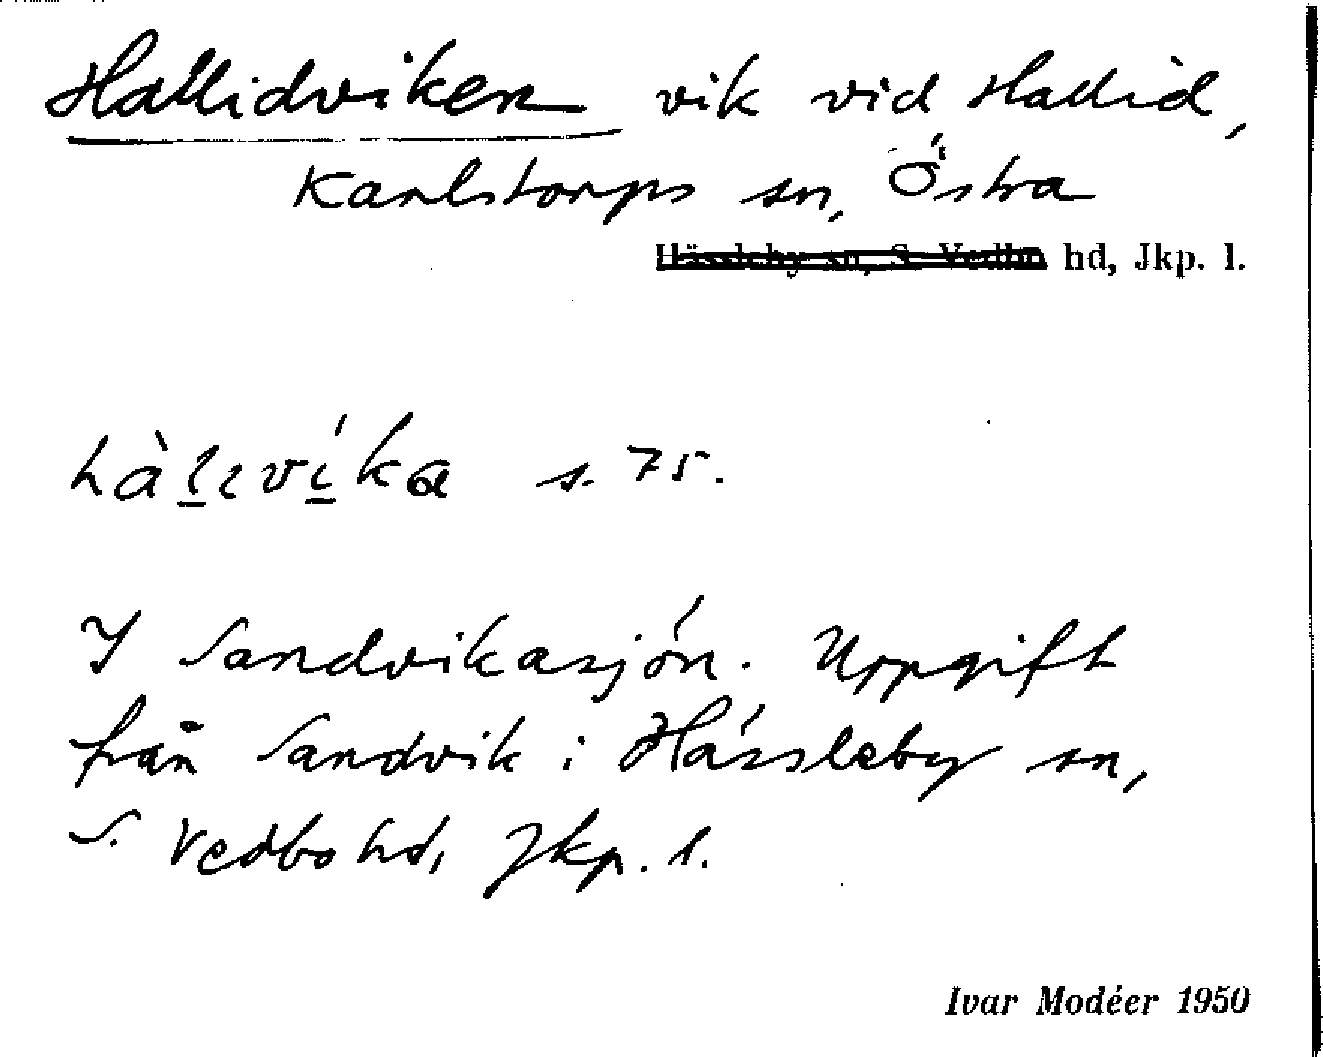 Hallidviken vik vid Hallid,
Karlstorps sn, Östra
Hässleby sn, S. Vedbo hd, Jkp. l.
s. 75.
I Sandvikasjön. Uppgift
från Sandvik i Hässleby sn,
S. Vedbo hd, Jkp. l.
Ivar Modéer 1950